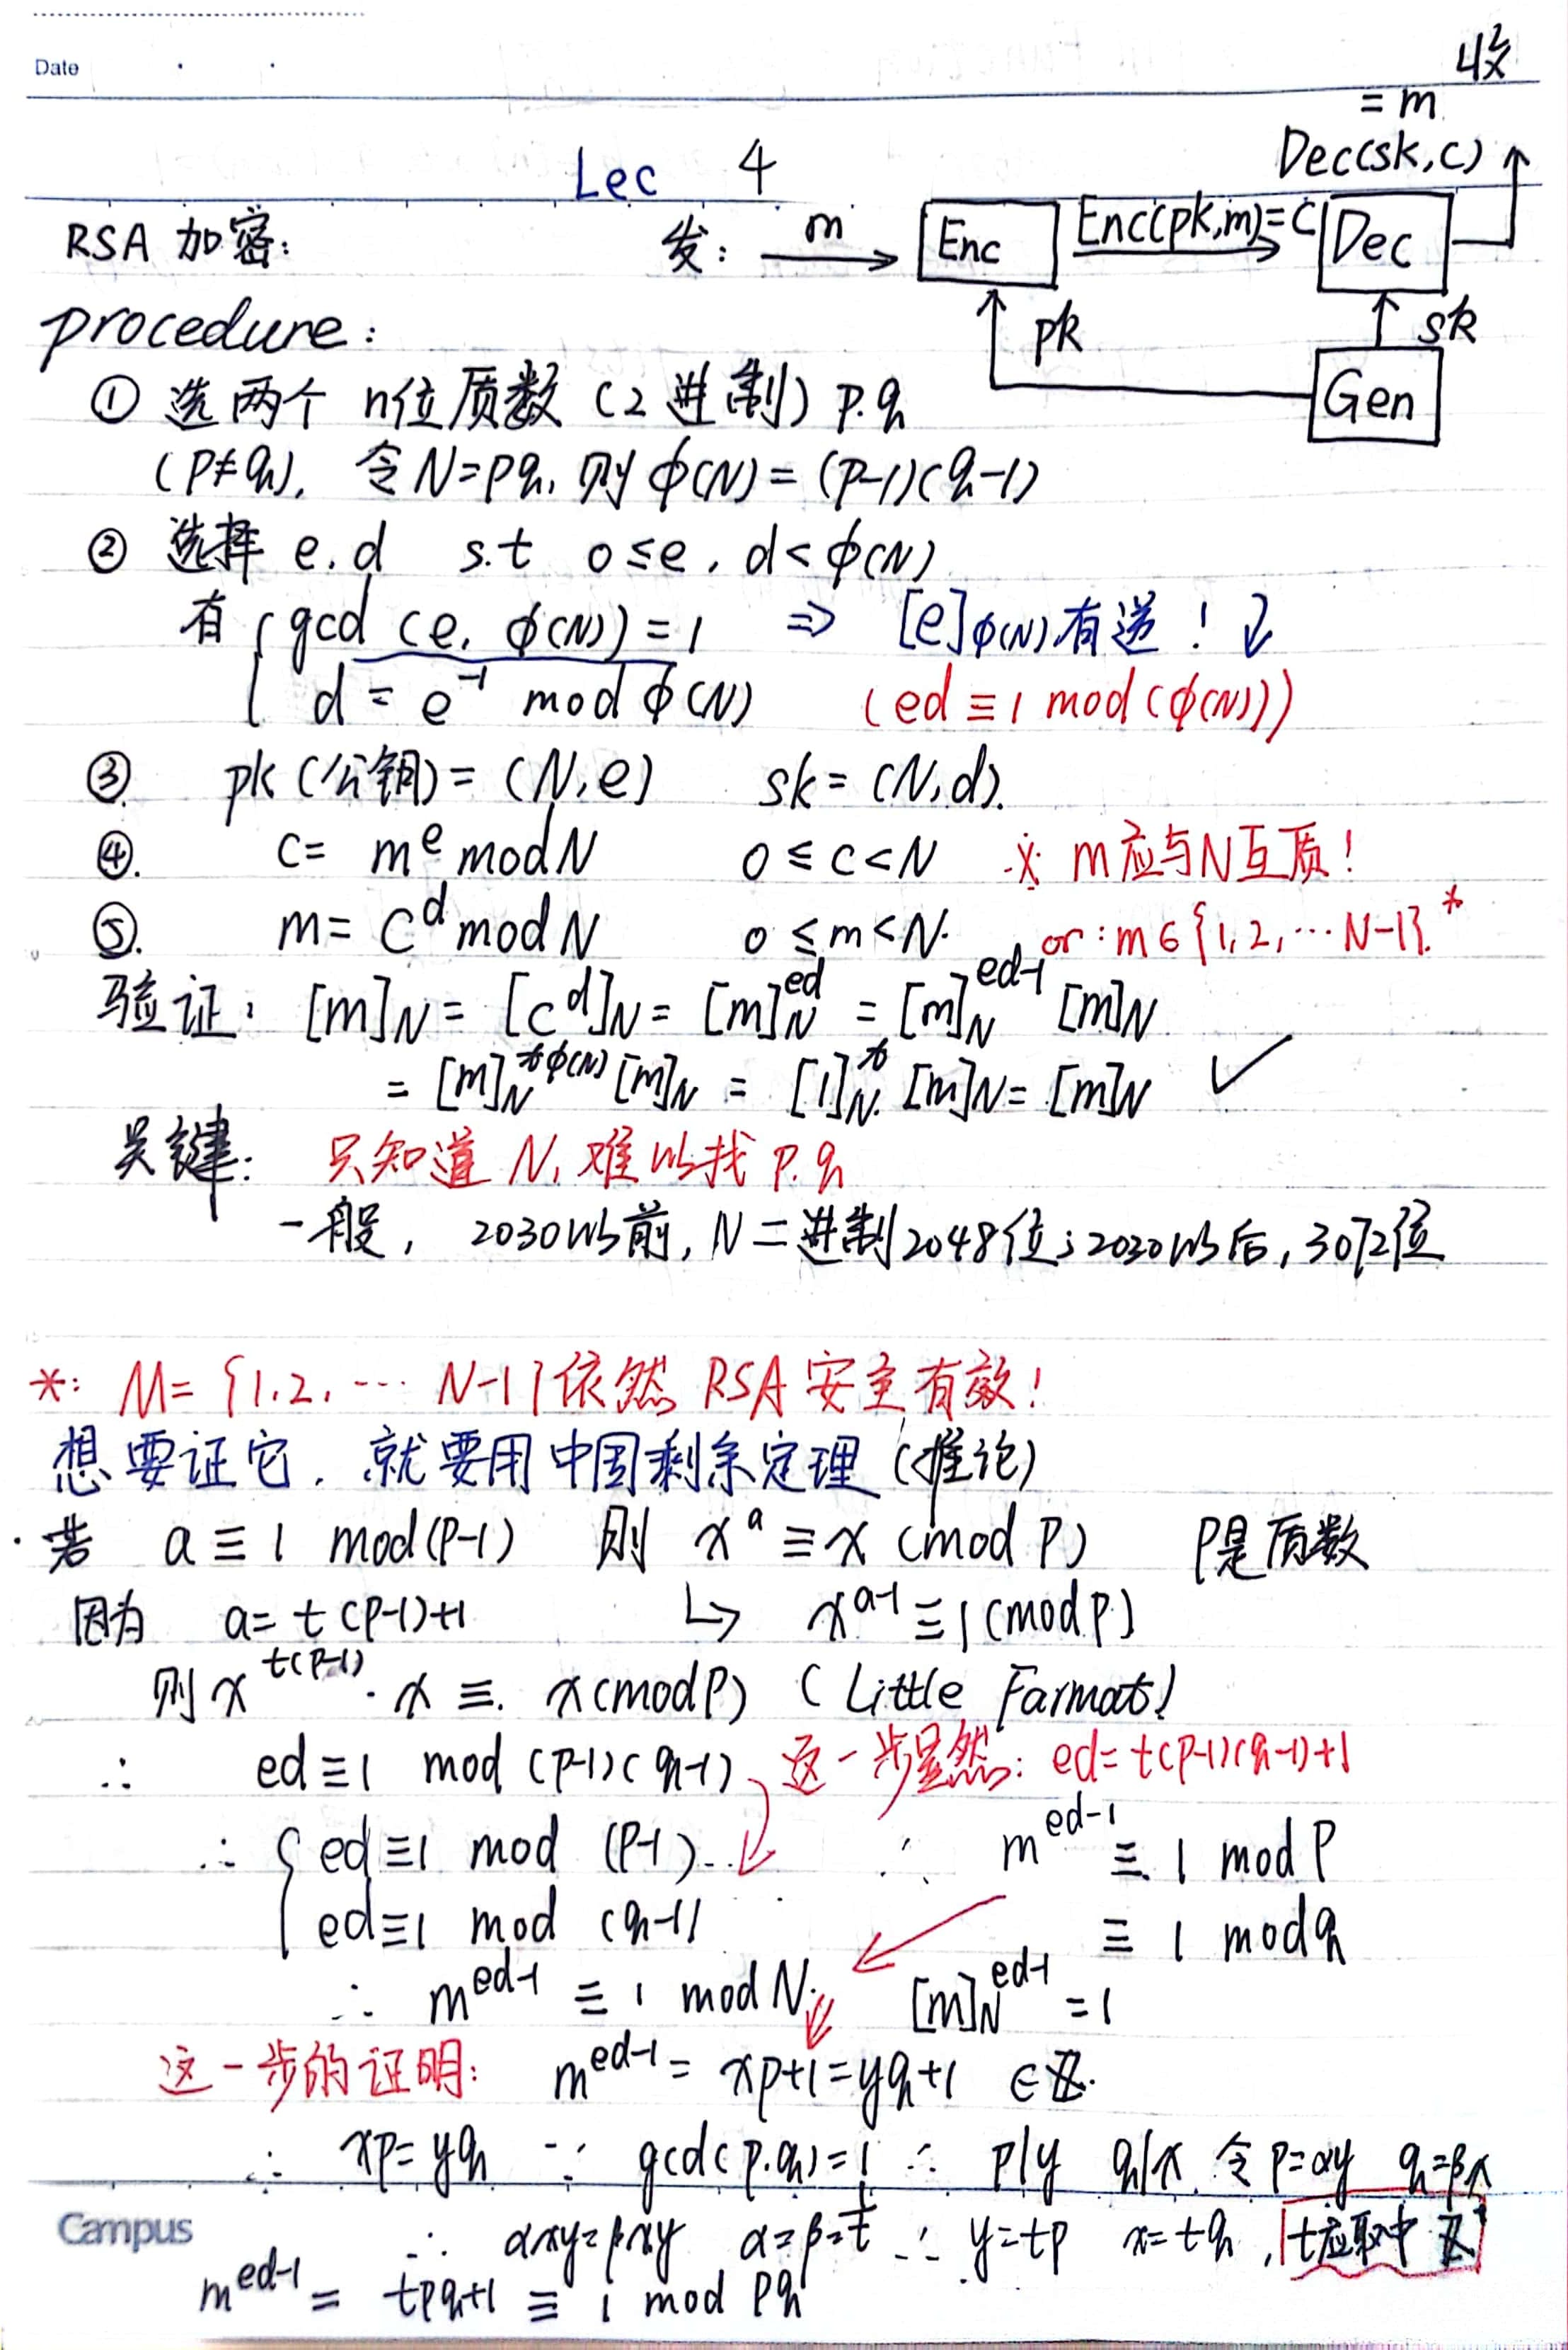 Date
收
= m
Dec(sk,c)
Lec 4
RSA 加密: 发: m Enc Enc(pk,m)=C Dec
pk sk
Gen
procedure:
① 选两个 n位质数 (2进制) p.q
(p≠q), 令N=pq, 则 ϕ(N) = (p-1)(q-1)
② 选择 e.d s.t 0≤e, d<ϕ(N)
有 { gcd (e, ϕ(N)) = 1 ⇒ [e]ϕ(N) 有逆!
d = e^-1 mod ϕ(N) (ed ≡ 1 mod (ϕ(N)))
③. pk (公钥) = (N,e) sk = (N,d).
④. c= m^e mod N 0 ≤ c < N ※: m应与N互质!
⑤. m= C^d mod N 0 ≤ m < N. or: m∈{1,2,…N-1}.*
验证: [m]N = [c^d]N = [m]N^ed = [m]N^ed-1 [m]N
= [m]N^tϕ(N) [m]N = [1]N^t [m]N = [m]N ✓
关键: 只知道 N, 难以找 p.q
一般, 2030以前, N二进制2048位; 2030以后, 3072位
*: M= {1.2, … N-1}依然 RSA 安全有效!
想要证它, 就要用中国剩余定理 (推论)
· 若 a ≡ 1 mod(p-1) 则 x^a ≡ x (mod p) P是质数
因为 a= t(p-1)+1 ↳ x^a-1 ≡ 1 (mod p)
则 x^t(p-1) · x ≡ x(mod p) (Little Farmat)
∴ ed≡1 mod (p-1)(q-1) 这一步显然: ed= t(p-1)(q-1)+1
∴ { ed≡1 mod (p-1) ∴ m^ed-1 ≡ 1 mod P
ed≡1 mod (q-1) ≡ 1 mod q
∴ m^ed-1 ≡ 1 mod N. [m]N^ed-1 = 1
这一步的证明: m^ed-1 = xp+1=yq+1 ∈ℤ.
∴ xp=yq ∵ gcd(p.q)=1 ∴ p|y q|x 令 p=αy q=βx
∴ αxy=βxy α=β=1/t ∴ y=tp x=tq, t应取中 ℤ
Campus
m^ed-1 = tpq+1 ≡ 1 mod pq